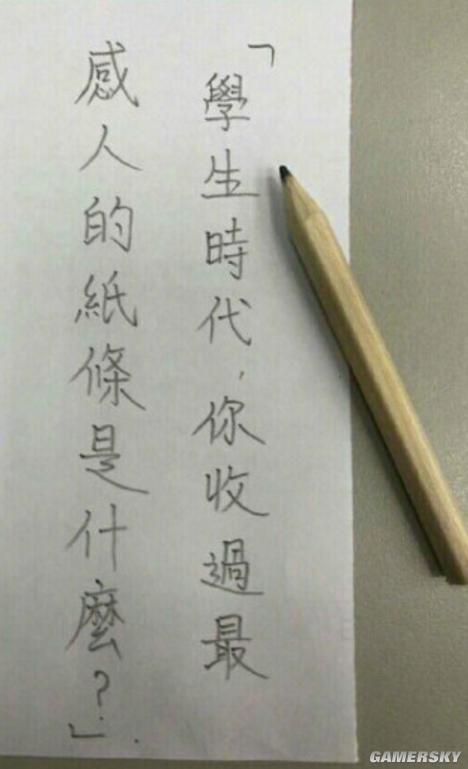 「學生時代，你收過最
感人的紙條是什麼？」.
GAMERSKY